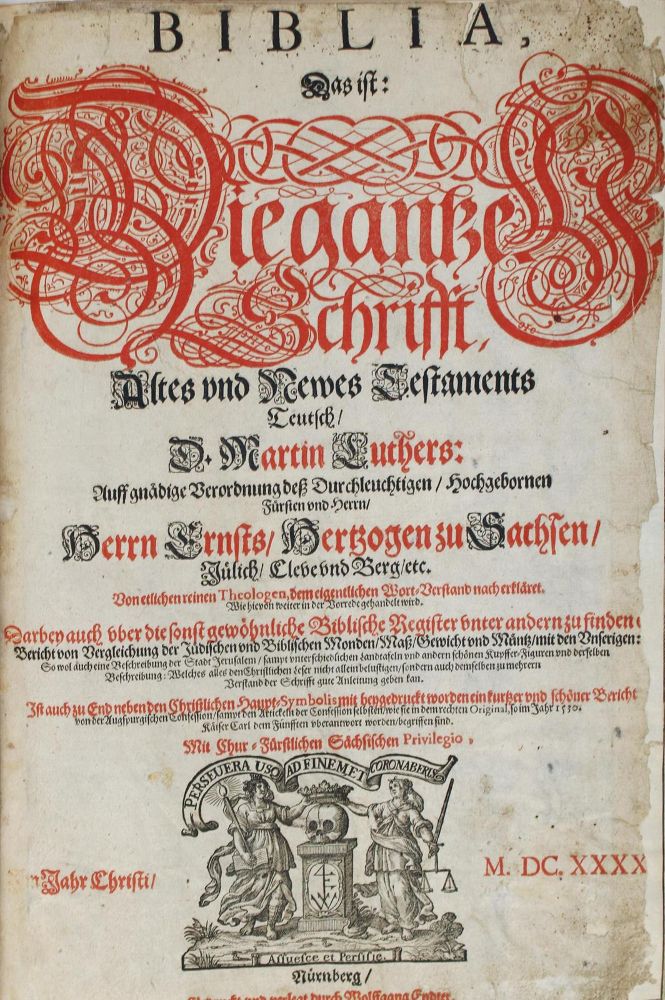 BIBLIA,
Das ist:
Die gantze H
Schrifft,
Altes vnd Newes Testaments
Teutsch/
D. Martin Luthers:
Auff gnädige Verordnung deß Durchleuchtigen / Hochgebornen
Fürsten vnd Herrn/
Herrn Ernsts/ Hertzogen zu Sachsen/
Jülich/ Cleve vnd Berg/etc.
Von etlichen reinen Theologen, dem eigentlichen Wort-Verstand nach erkläret.
Wie hievon weiter in der Vorrede gehandelt wird.
Darbey auch vber die sonst gewöhnliche Biblische Register vnter andern zu finden
Bericht von Vergleichung der Jüdischen vnd Biblischen Monden/ Maß/ Gewicht vnd Müntz/ mit den Vnserigen:
So wol auch eine Beschreibung der Stadt Jerusalem / sampt vnterschiedlichen Landtafeln vnd andern schönen Kupffer-Figuren vnd derselben
Beschreibung: Welches alles den Christlichen Leser nicht allein belustigen/ sondern auch demselben zu mehrern
Verstand der Schrifft gute Anleitung geben kan.
Ist auch zu End neben den Christlichen Haupt-Symbolis mit beygedruckt worden ein kurtzer vnd schöner Bericht
von der Augspurgischen Confession/ sampt den Articteln der Confession selbsten/ wie sie in dem rechten Original, so im Jahr 1530.
Käiser Carl dem Fünfften vberantwort worden/ begriffen sind.
Mit Chur-Fürstlichen Sächsischen Privilegio,
PERSEVERA USQ AD FINEM ET CORONABERIS
Jahr Christi/
M. DC. XXXX
Assuesce et Persiste.
Nürnberg/
durch Wolffgang Endter.